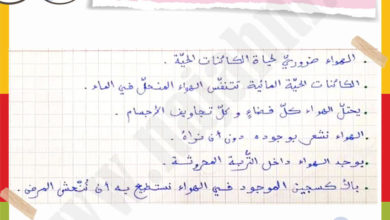 . الهواء ضروريّ لحياة الكائنات الحيّة .
. الكائنات الحيّة المائيّة تتنفّس الهواء المنحلّ في الماء .
. يحتلّ الهواء كلّ فضاء و كلّ تجاويف الأجسام .
. الهواء نشعر بوجوده دون أن نراهُ .
. يوجد الهواء داخل التُّربة المحروثة .
. بالأكسجين الموجود في الهواء نستطيع به أن نُنعش المرضى .